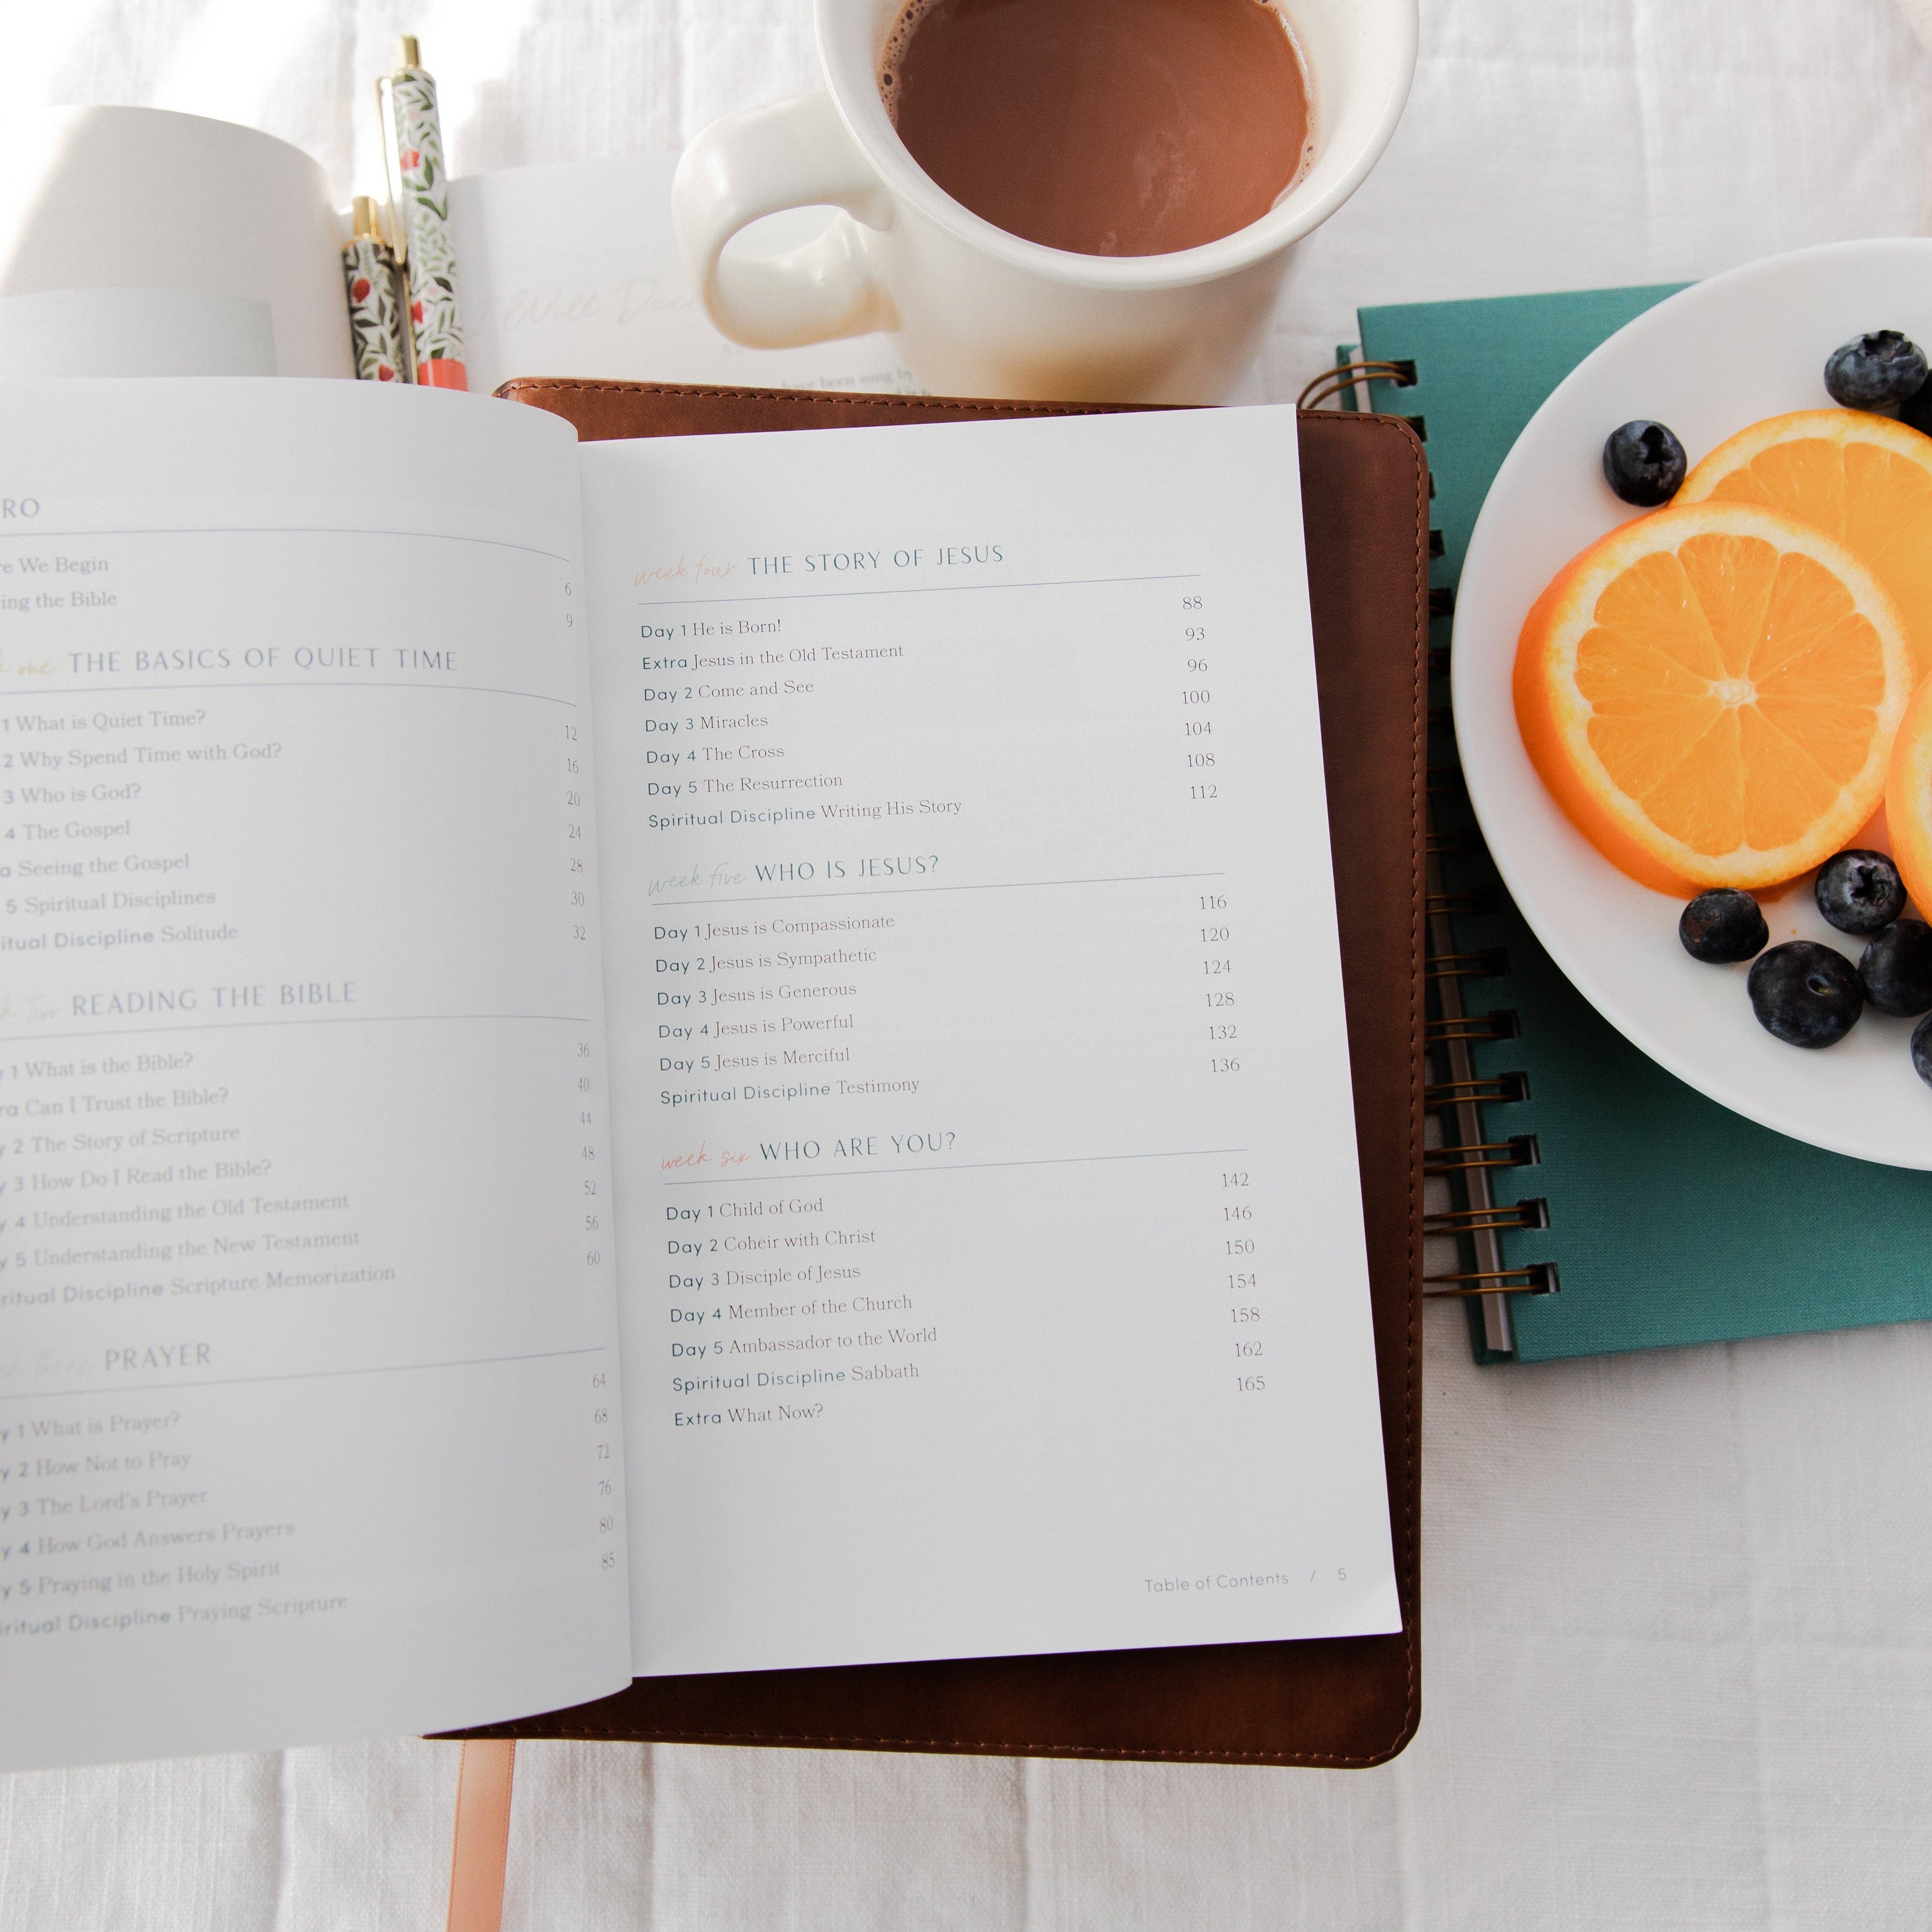 I Will
have been sung by
RO
re We Begin 6
ing the Bible 9
one THE BASICS OF QUIET TIME
1 What is Quiet Time? 12
2 Why Spend Time with God? 16
3 Who is God? 20
4 The Gospel 24
a Seeing the Gospel 28
5 Spiritual Disciplines 30
itual Discipline Solitude 32
k two READING THE BIBLE
y 1 What is the Bible? 36
ra Can I Trust the Bible? 40
y 2 The Story of Scripture 44
y 3 How Do I Read the Bible? 48
y 4 Understanding the Old Testament 52
y 5 Understanding the New Testament 56
ritual Discipline Scripture Memorization 60
three PRAYER
y 1 What is Prayer? 64
y 2 How Not to Pray 68
y 3 The Lord's Prayer 72
y 4 How God Answers Prayers 76
y 5 Praying in the Holy Spirit 80
iritual Discipline Praying Scripture 85
week four THE STORY OF JESUS
Day 1 He is Born! 88
Extra Jesus in the Old Testament 93
Day 2 Come and See 96
Day 3 Miracles 100
Day 4 The Cross 104
Day 5 The Resurrection 108
Spiritual Discipline Writing His Story 112
week five WHO IS JESUS?
Day 1 Jesus is Compassionate 116
Day 2 Jesus is Sympathetic 120
Day 3 Jesus is Generous 124
Day 4 Jesus is Powerful 128
Day 5 Jesus is Merciful 132
Spiritual Discipline Testimony 136
week six WHO ARE YOU?
Day 1 Child of God 142
Day 2 Coheir with Christ 146
Day 3 Disciple of Jesus 150
Day 4 Member of the Church 154
Day 5 Ambassador to the World 158
Spiritual Discipline Sabbath 162
Extra What Now? 165
Table of Contents / 5